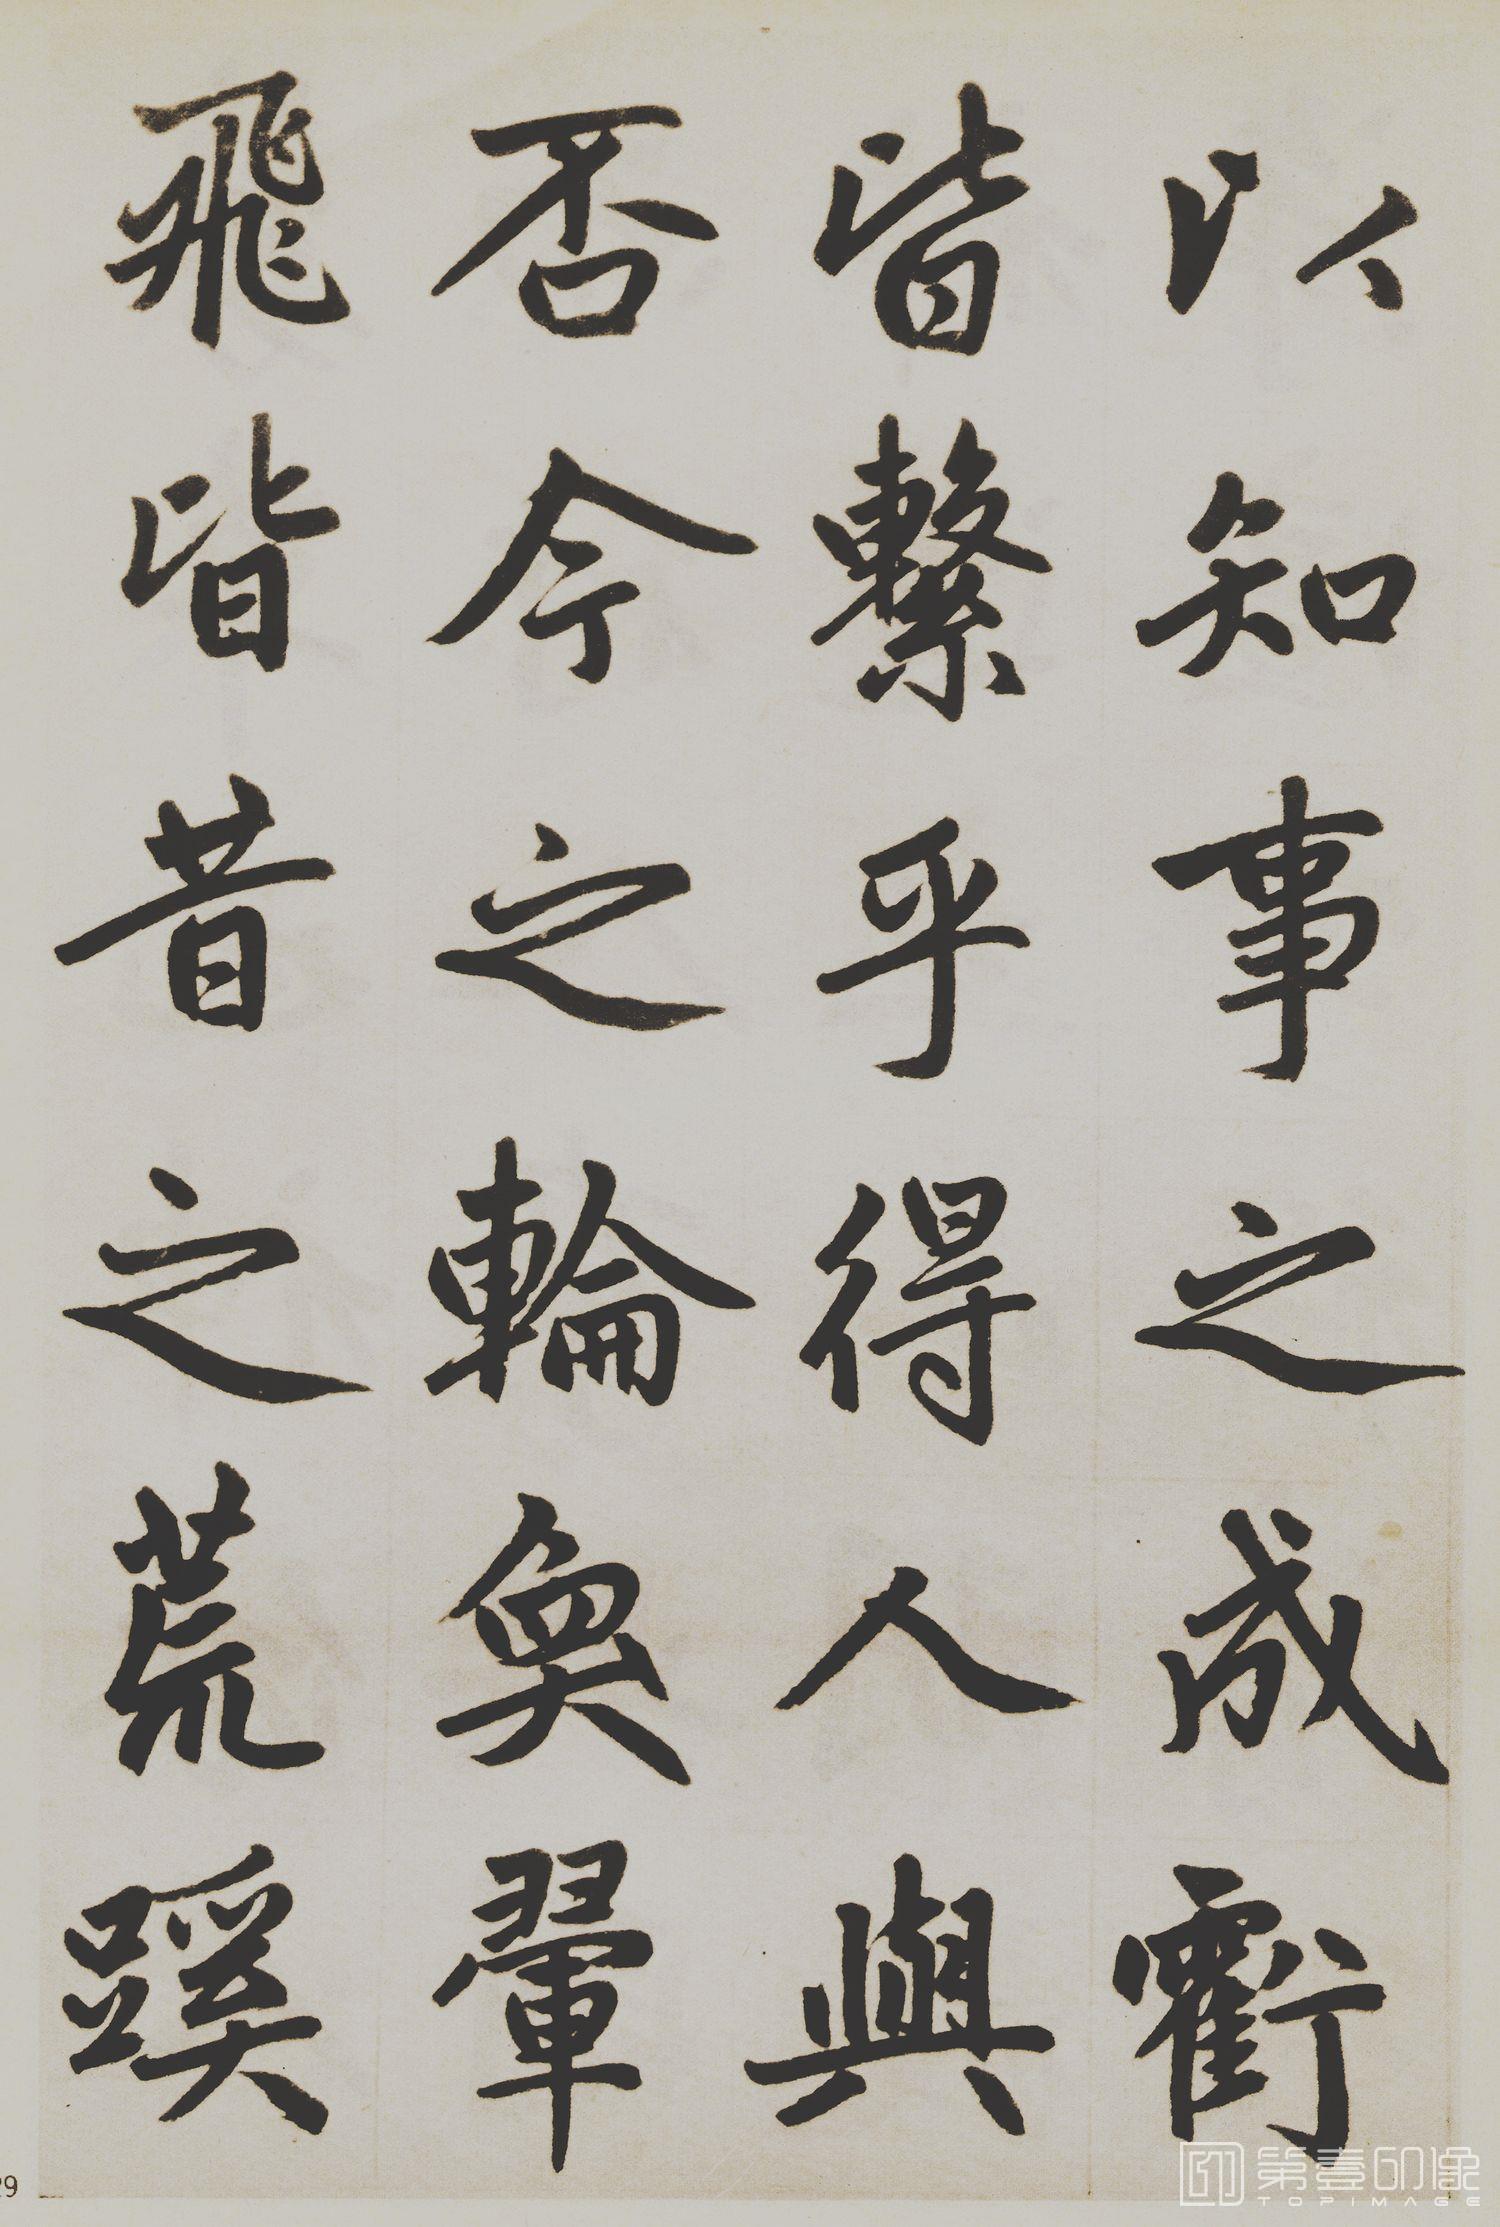 以知事之成虧
皆繫乎得人與
否今之輪奐翬
飛皆昔之荒蹊
29
第壹印像
TOPIMAGE